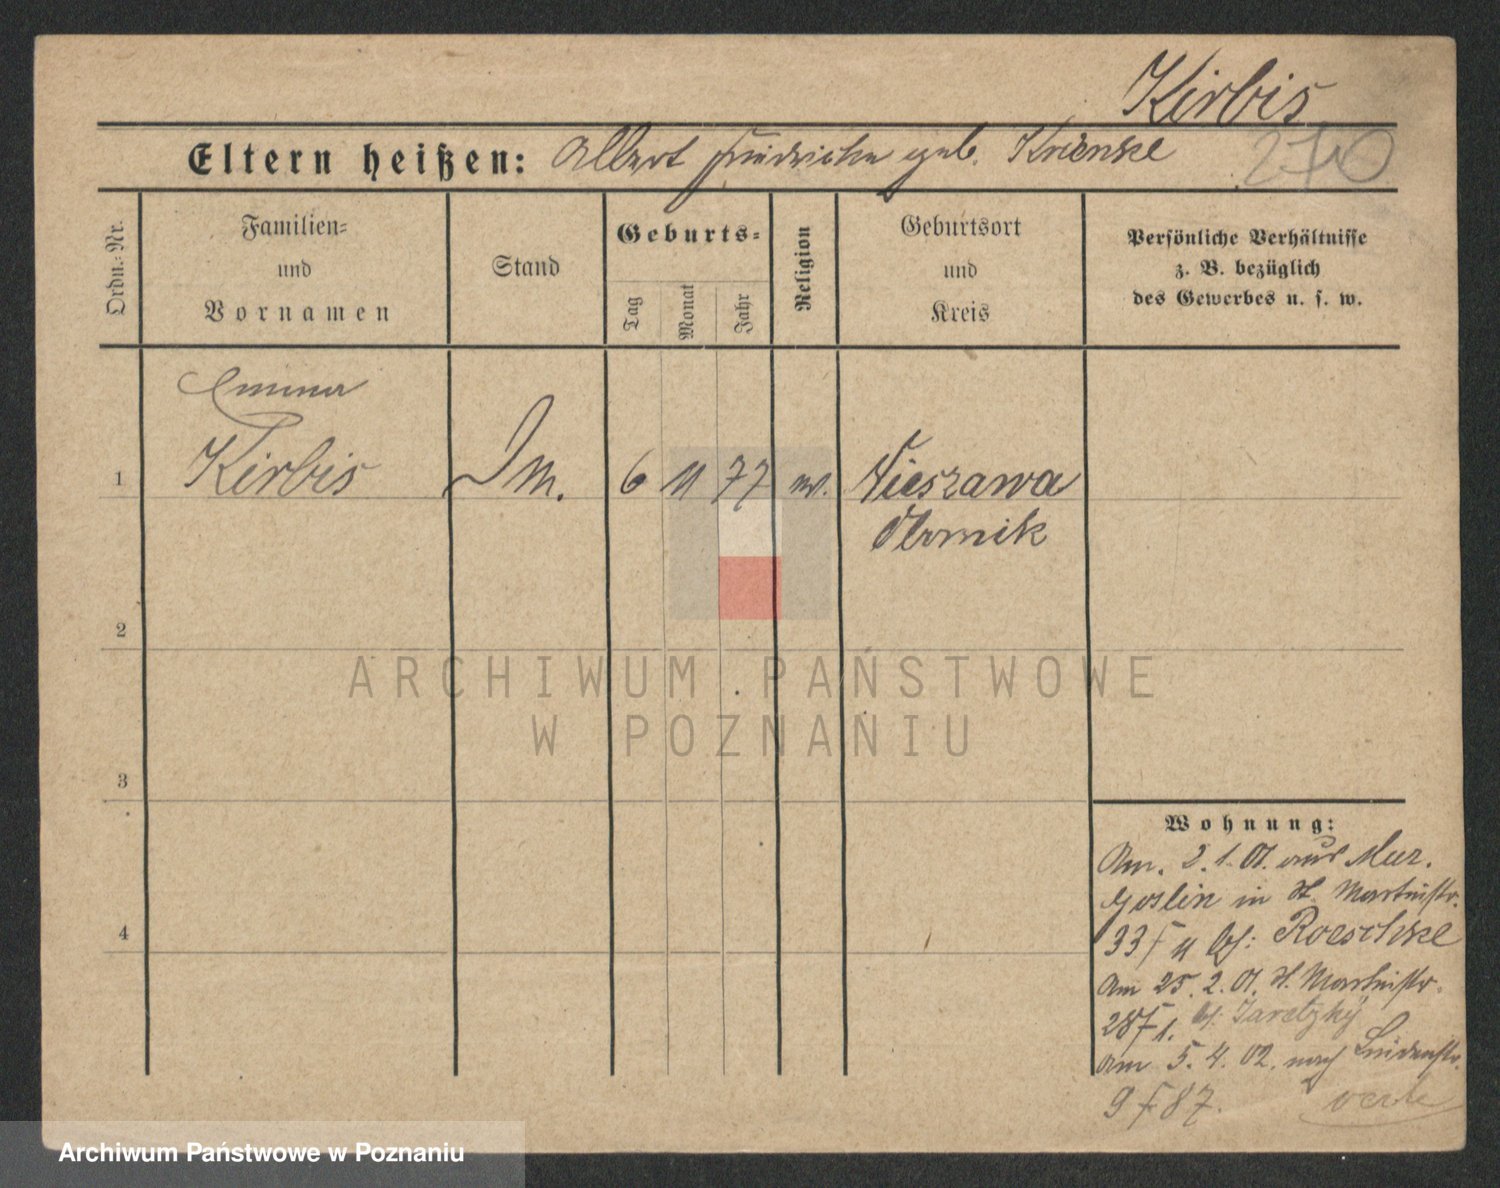 Kirbis
Eltern heißen: Albert Friedricke geb. Krienke
270
Ordn.=Nr.
Familien=
und
Vornamen
Stand
Geburts=
Tag
Monat
Jahr
Religion
Geburtsort
und
Kreis
Persönliche Verhältnisse
z. B. bezüglich
des Gewerbes u. s. w.
Emma
1 Kirbis Dm. 6 11 77 ev. Nieszawa
Obornik
2
3
4
ARCHIWUM PAŃSTWOWE
W POZNANIU
Wohnung:
Am. 2. 1. 01. aus Mur.
Goslin in St. Martinstr.
33/ II bf: Roeschke
Am 25. 2. 01. St. Martinstr.
28/ I. bf: Jaretzky
Am 5. 4. 02. nach
9 87.
Archiwum Państwowe w Poznaniu